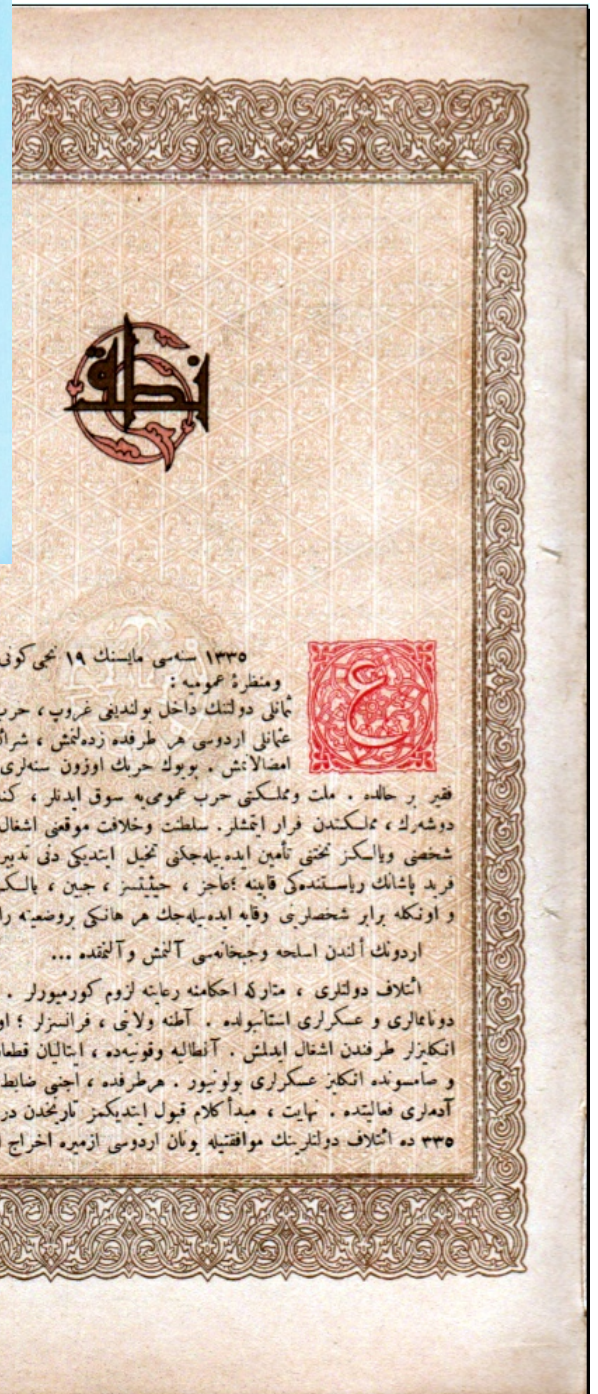 نطق
١٣٣٥ سنه‌سی مایسنك ١٩ نجی كونی
ومنظرهٔ عمومیه :
ع
ثمانلی دولتنك داخل بولندیغی غروپ ، حرب
عثمانلی اردوسی هر طرفده زده‌لنمش ، شرائ
امضالانمش . بویوك حربك اوزون سنه‌لری
فقیر بر حالده . ملت ومملكتی حرب عمومی‌یه سوق ایدنلر ، كند
دوشه‌رك ، مملكتدن فرار ایتمشلر. سلطنت وخلافت موقعنی اشغال
شخصنی ویالكز تختنی تأمین ایده‌بیله‌جكنی تخیل ایتدیكی دنی تدبیر
فرید پاشانك ریاستنده‌كی قابینه ؛عاجز ، حیثیتسز ، جبین ، یالكز
و اونكله برابر شخصلرینی وقایه ایده‌بیله‌جك هر هانكی بروضعیته را
اردونك ألندن اسلحه وجبخانه‌سی آلنمش وآلنمقده ...
ائتلاف دولتلری ، متاركه احكامنه رعایته لزوم كورمیورلر .
دونامالری و عسكرلری استانبولده . آطنه ولایتی ، فرانسزلر ؛ او
انكلیزلر طرفندن اشغال ایدلمش . آنطالیه وقونیه‌ده ، ایتالیان قطعا
و صامسونده انكلیز عسكرلری بولونیور . هرطرفده ، اجنبی ضابط
آدملری فعالیتده . نهایت ، مبدأ كلام قبول ایتدیكمز تاریخدن در
٣٣٥ ده ائتلاف دولتلرینك موافقتیله یونان اردوسی ازمیره اخراج ا